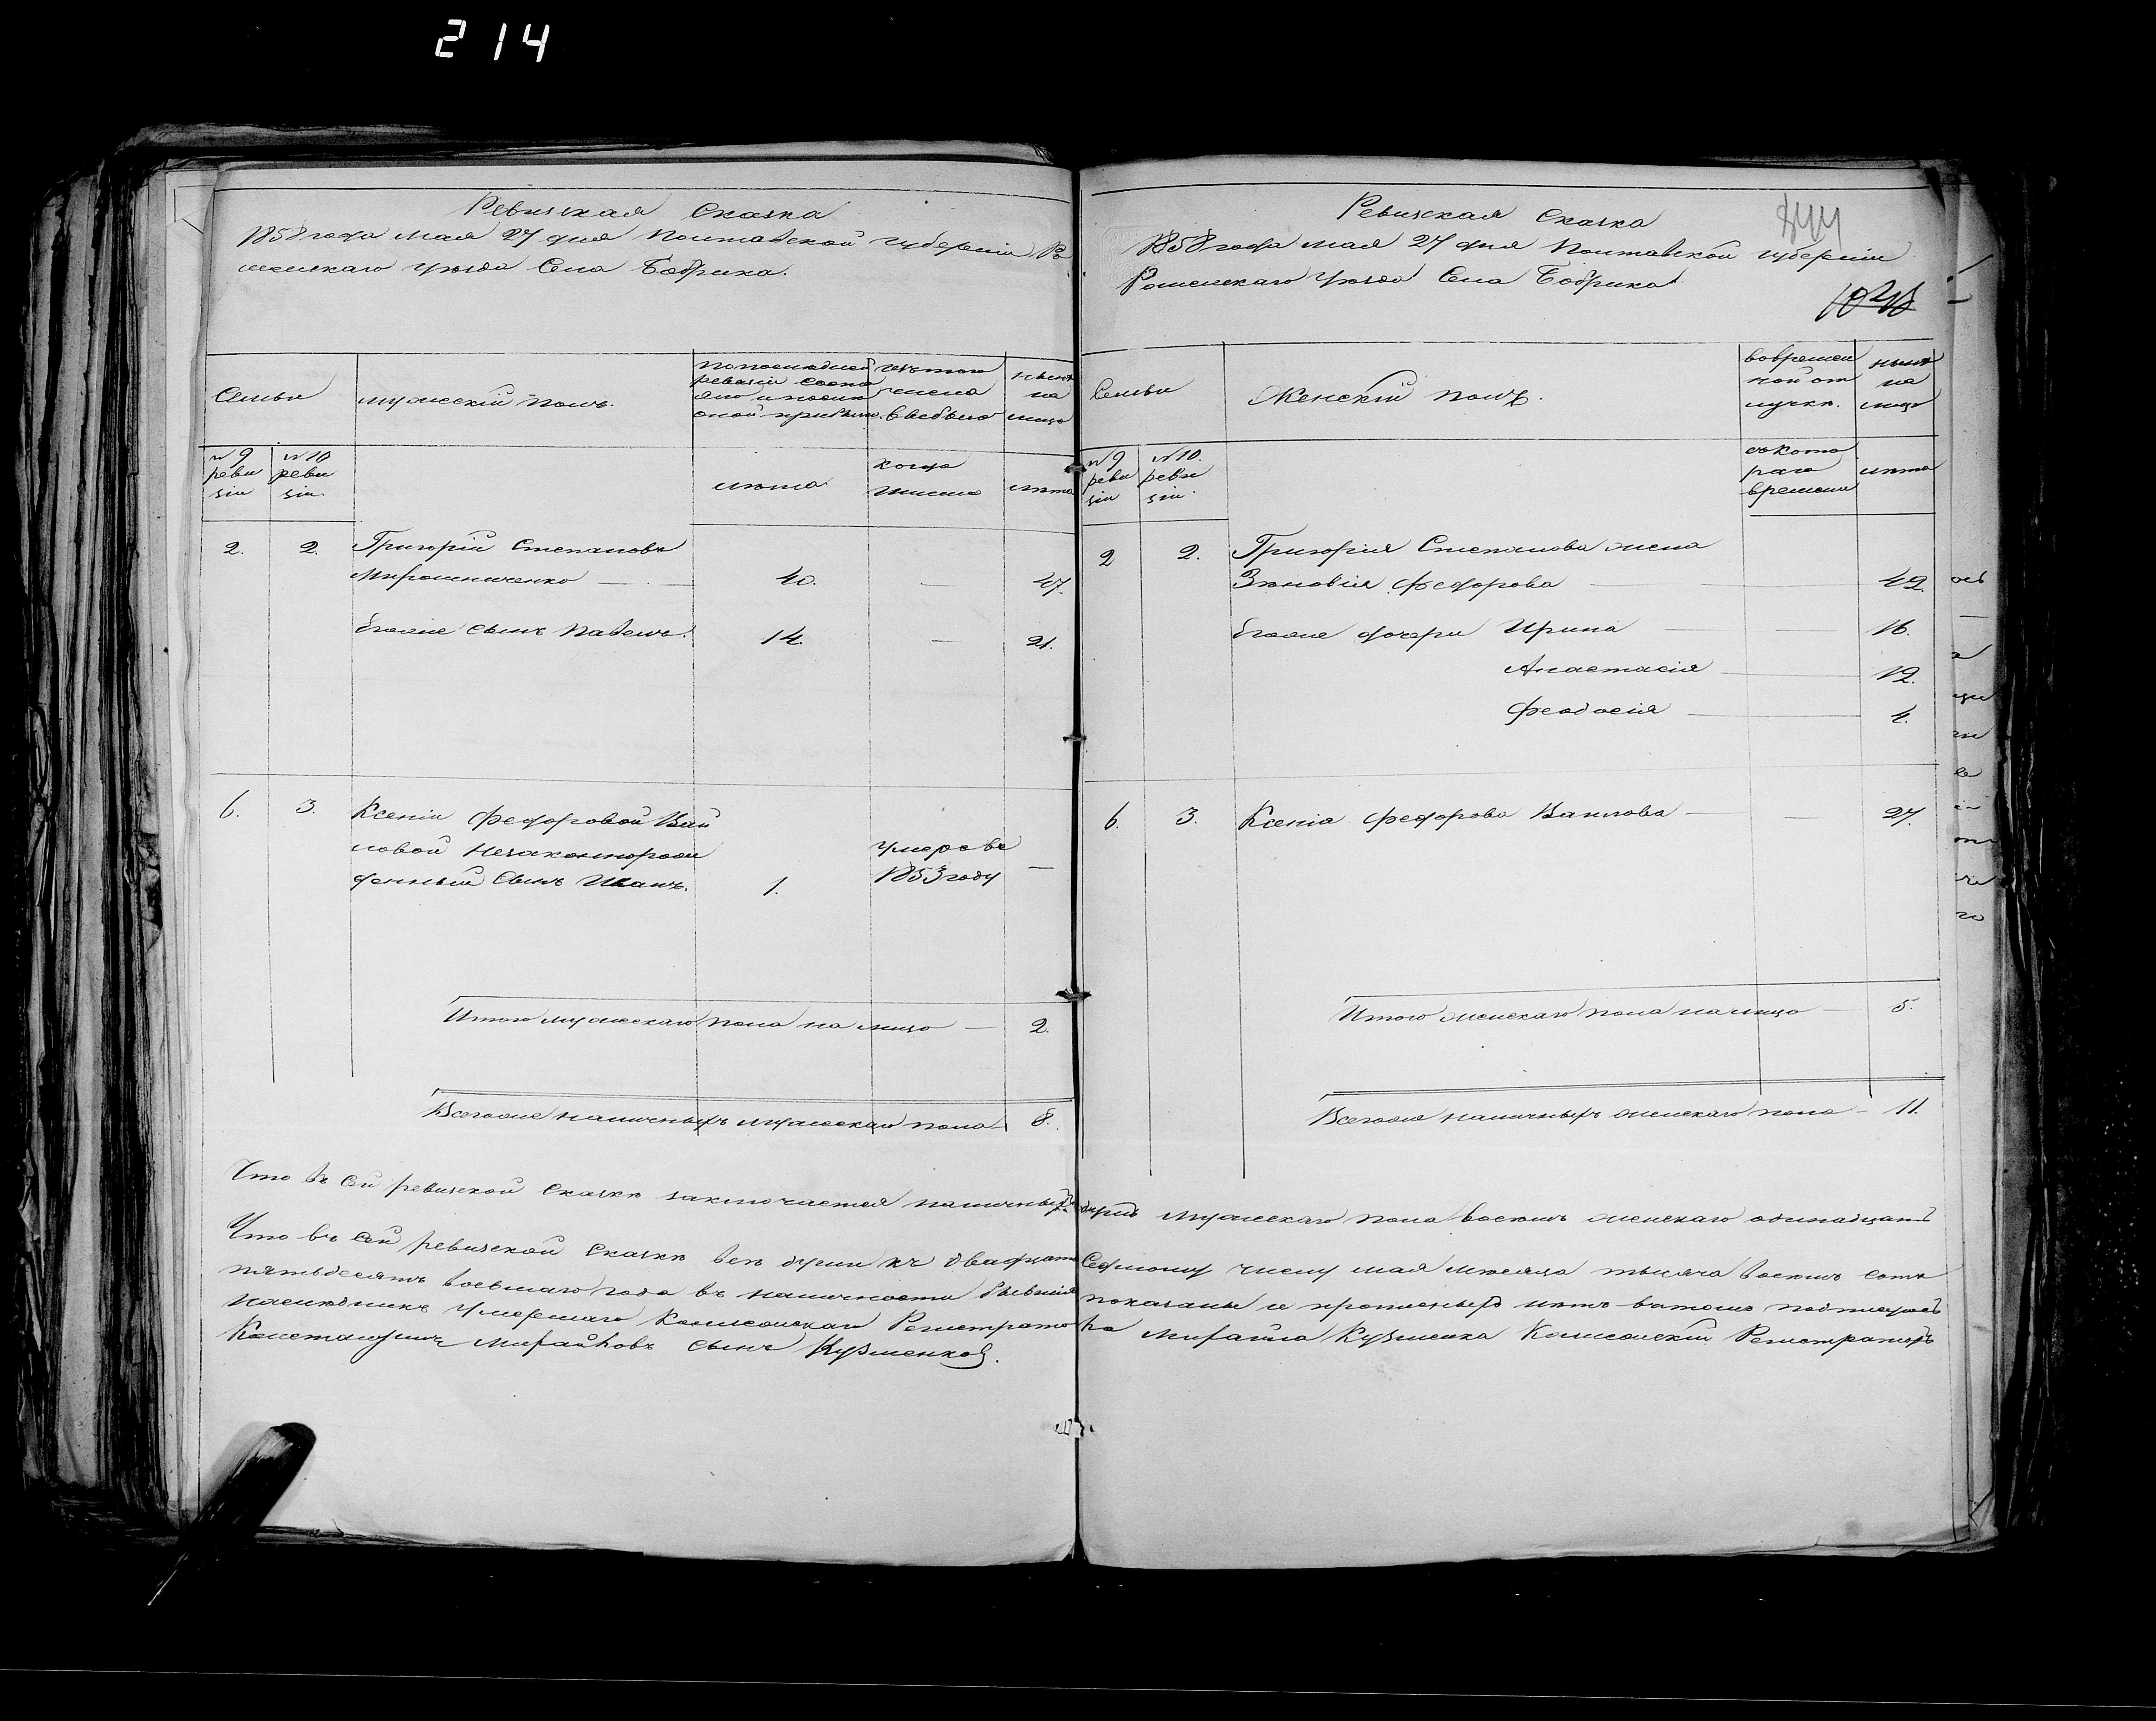 214
Ревизская Сказка
1858 года мая 27 дня Полтавской губерніи Ро
менскаго уѣзда Села Бобрика.
Семьи
мужескій полъ.
по последней
ревизіи состо
яло и после
оной прибыло.
изъ того
числа
выбыло
нынѣ
на
лицо
№ 9
реви
зіи
№ 10
реви
зіи.
лѣта
когда
именно
лѣта
2. 2. Григорій Степановъ
Мирошниченко — 40. — 47.
Егоже сынъ Павелъ. 14. — 21.
6. 3. Ксеніи Федоровой Ваи
ловой незаконнорож
денный сынъ Иванъ. 1. умеръ въ 1853 году —
Итого мужескаго пола на лицо — 2.
Всегоже наличныхъ мужескаго пола 8.
Ревизская Сказка
1858 года мая 27 дня Полтавской губерніи
Роменскаго уѣзда Села Бобрика
Семьи
Женскій полъ.
во времен
ной от
лучкѣ.
нынѣ
на
лицо
№ 9
реви
зіи
№ 10.
реви
зіи.
съ кото
раго
времени
лѣта
2 2. Григорія Степанова жена
Зѣновія Федорова — 42.
Егоже дочери Ирина — — 16.
Анастасія — 12.
Феодосія — 4.
6. 3. Ксенія Федорова Ваилова — — 27.
Итого женскаго пола на лицо — 5.
Всегоже наличныхъ женскаго пола — 11.
Что въ сей ревизской сказкѣ заключается наличныхъ душъ мужескаго пола восемь женскаго одинадцать
Что въ сей ревизской сказкѣ всѣ души къ двадцать Седмому числу мая мѣсяца тысяча восемь сотъ
пятьдесятъ восьмаго года въ наличности бывшія показаны и прописныхъ нѣтъ въ томъ подписуюсь
наследникъ умершаго Колежскаго Регистрато ра Михайла Кузменка Колежскій Регистраторъ
Константинъ Михайловъ сынъ Кузменковъ.